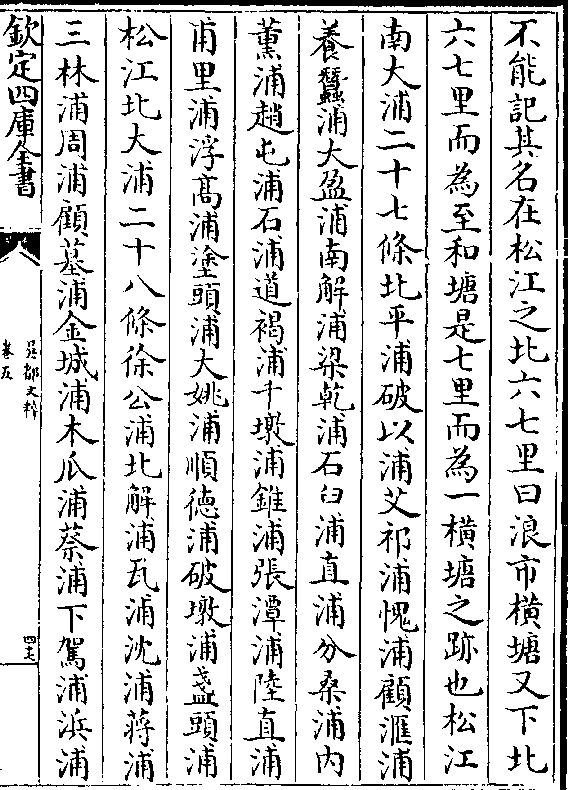 不能記其名在松江之北六七里曰浪市橫塘又下北
六七里而為至和塘是七里而為一橫塘之跡也松江
南大浦二十七條北平浦破以浦艾祁浦愧浦顧滙浦
養蠶浦大盈浦南解浦梁乾浦石臼浦直浦分桑浦内
薫浦趙屯浦石浦道褐浦千墩浦錐浦張潭浦陸直浦
甫里浦浮髙浦塗頭浦大姚浦順徳浦破墩浦盞頭浦
松江北大浦二十八條徐公浦北解浦瓦浦沈浦蔣浦
三林浦周浦顧墓浦金城浦木瓜浦蔡浦下駕浦浜浦
欽定四庫全書
吳都文粹
卷五
四七